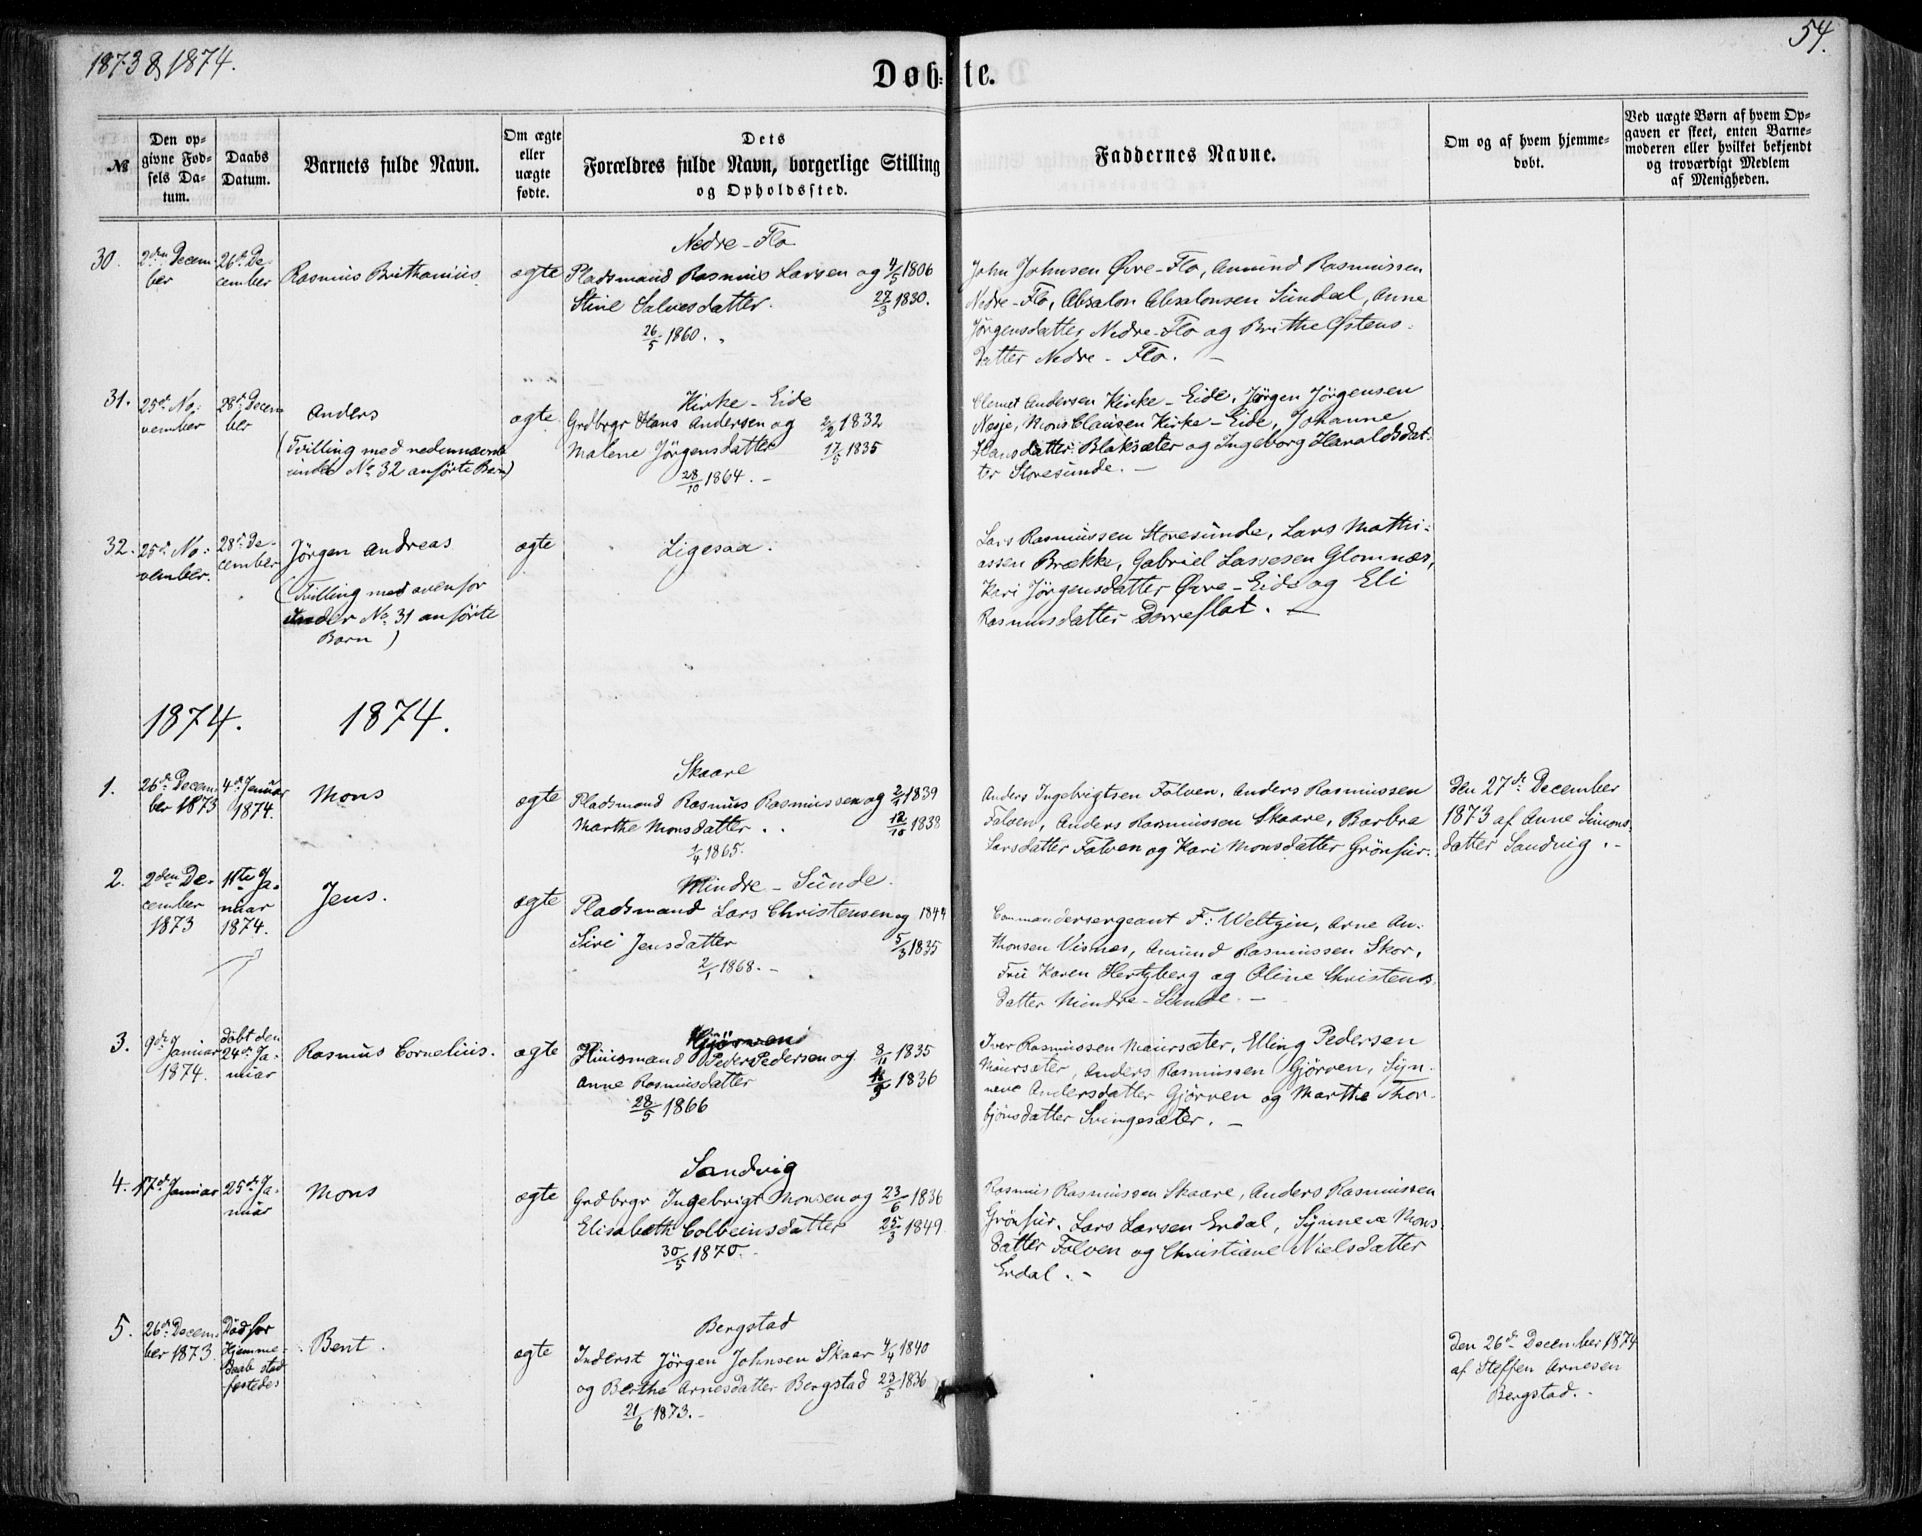 1873 & 1874.
54.
Døbte.
№
Den op-
givne Fød-
sels Da-
tum.
Daabs
Datum.
Barnets fulde Navn.
Om ægte
eller
uægte
fødte.
Dets
Forældres fulde Navn, borgerlige Stilling
og Opholdssted.
Faddernes Navne.
Om og af hvem hjemme-
døbt.
Ved uægte Børn af hvem Op-
gaven er skeet, enten Barne-
moderen eller hvilket bekjendt
og troværdigt Medlem
af Menigheden.
30.
2den Decem-
ber
26de De-
cember
Rasmus Brithanius.
ægte
Nedre-Flo
Pladsmand Rasmus Larsen og 4/5 1806
Stine Salvesdatter. 27/3 1830.
26/5 1860.
John Johnsen Øvre-Flo, Amund Rasmussen
Nedre-Flo, Absalon Absalonsen Sundal, Anne
Jørgensdatter Nedre-Flo og Brithe Østens-
datter Nedre-Flo. —
31.
25de No-
vember
28de Decem
ber
Anders
(Tvilling med nedennævnte
under No. 32 anførte Barn)
ægte
Kirke-Eide
Grdbrgr Hans Andersen og 2/2 1832
Malene Jørgensdatter 17/5 1835
28/10 1864. —
Clemet Andersen Kirke-Eide, Jørgen Jørgensen
Nesje, Mons Clausen Kirke-Eide, Johanne
Hansdatter Blaksæter og Ingeborg Haraldsdat-
ter Storesunde. —
32.
25de No-
vember.
28de De-
cember
Jörgen Andreas
(Tvilling med ovenfor
under No. 31 anførte
Barn)
ægte
Ligesaa.
Lars Rasmussen Storesunde, Lars Mathi-
assen Brække, Gabriel Lassesen Glomnæs,
Kari Jørgensdatter Øvre-Eide og Eli
Rasmusdatter Dorreflat. —
1874. 1874.
1.
26de Decem-
ber 1873
4de Januar
1874.
Mons
ægte
Skaare
Pladsmand Rasmus Rasmussen og 2/1 1839
Marthe Monsdatter. 12/10 1838
1/4 1865.
Anders Ingebrigtsen Folven, Anders Rasmussen
Folven, Anders Rasmussen Skaare, Barbra
Larsdatter Folven og Kari Monsdatter Grönfur.
Den 27de December
1873 af Anne Simons-
datter Sandvig. —
2.
2den De-
cember
1873
11te Ja-
nuar
1874.
Jens.
ægte
Mindre-Sunde.
Pladsmand Lars Christensen og 1844
Siri Jensdatter 5/3 1835
2/1 1868. —
Commandersergeant F. Weltzin, Arne An-
thonsen Visnes, Amund Rasmussen Skor,
Fru Karen Hertzberg og Oline Christens-
datter Mindre-Sunde. —
3.
9de Januar
1874.
døbt den
24de Ja-
nuar
Rasmus Cornelius.
ægte
Gjörven
Huusmand Peder Pedersen og 8/11 1835
Anne Rasmusdatter 1836
28/5 1866
Iver Rasmussen Maursæter, Elling Pedersen
Maursæter, Anders Rasmussen Gjörven, Syn-
neve Andersdatter Gjörven og Marthe Thor-
bjönsdatter Svingesæter. —
4.
17de Januar
25de Ja-
nuar
Mons
ægte
Sandvig
Grdbrgr Ingebrigt Monsen og 23/6 1836
Elisabeth Colbeinsdatter 25/3 1849
30/5 1870.
Rasmus Rasmussen Skaare, Anders Rasmussen
Grönfur, Lars Larsen Erdal, Synneve Mons-
datter Folven og Christiane Nielsdatter
Erdal. —
5.
26de Decem-
ber 1873.
Död før
Hjemme-
daab stad-
fæstedes
Bent.
ægte
Bergstad
Inderst Jörgen Johnsen Skaar 4/4 1840
og Berthe Arnesdatter Bergstad 23/5 1836
21/6 1873. —
Den 26de December 1874
af Steffen Arnesen
Bergstad. —